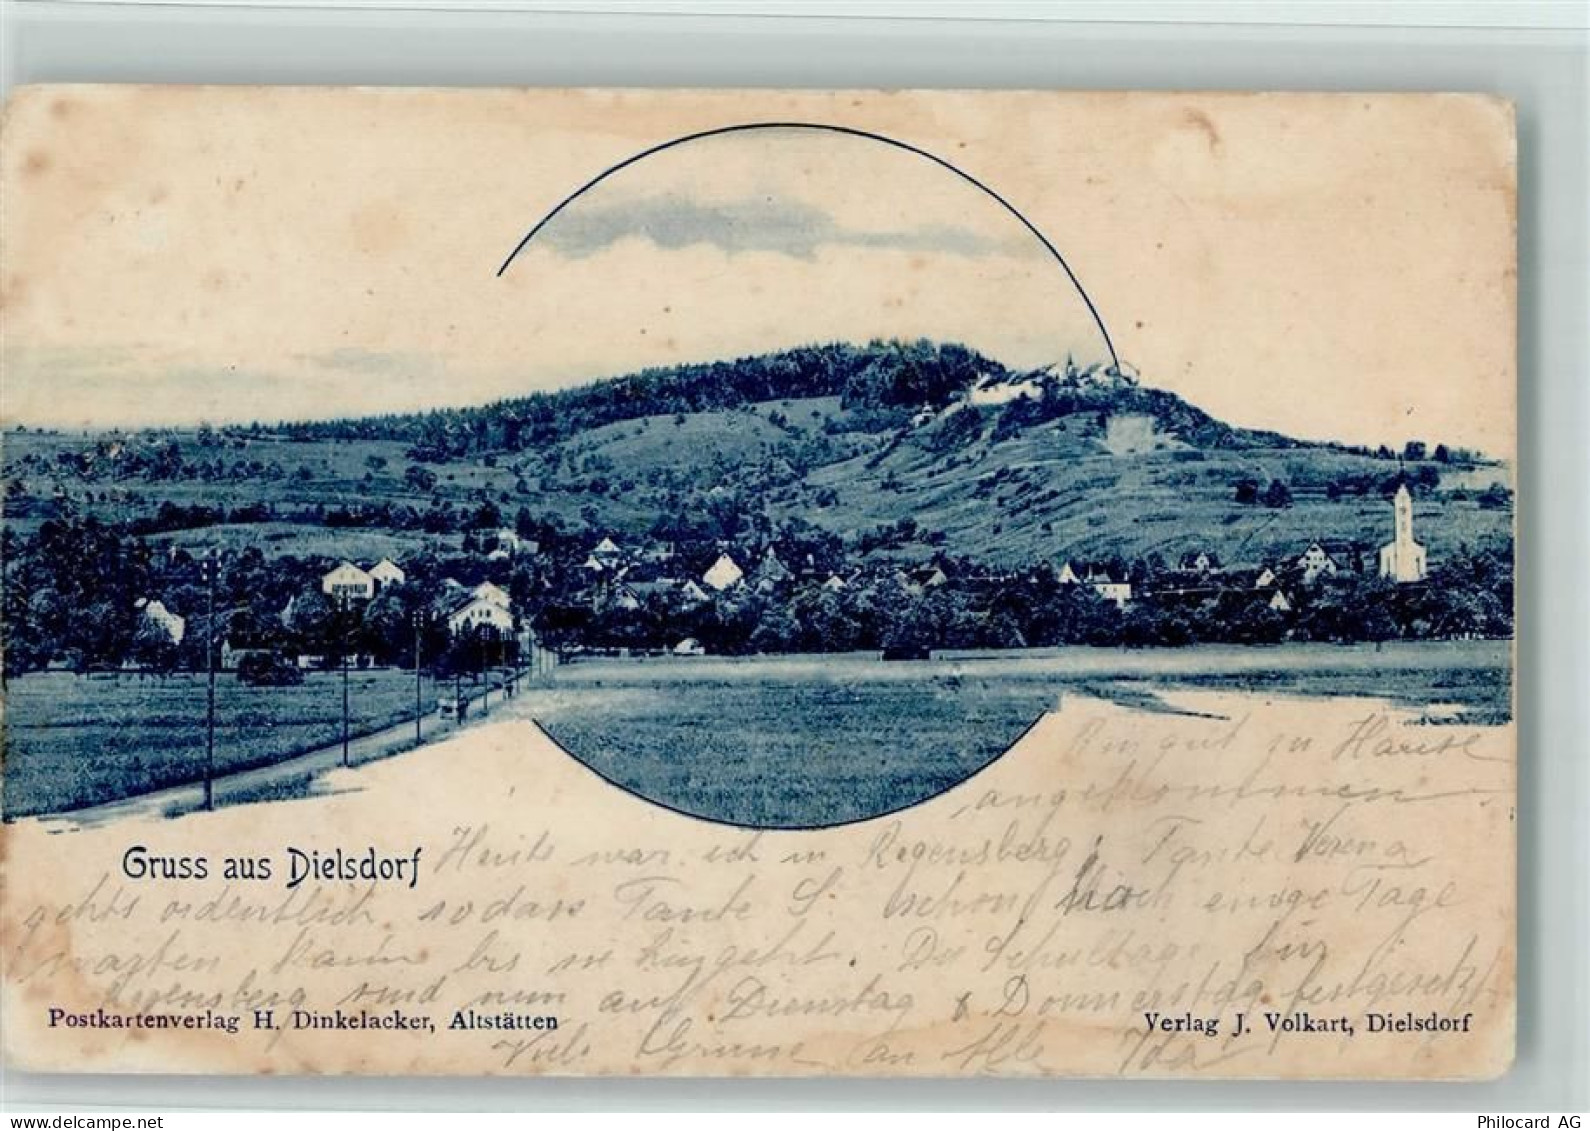 Bin gut zu Hause
angekommen.
Gruss aus Dielsdorf
Heute war ich in Regensberg; Tante Verena
gehts ordentlich, sodass Tante S. schon noch einige Tage
warten kann bis sie hingeht. Die Schultage für
Regensberg sind nun auf Dienstag & Donnerstag festgesetzt.
Postkartenverlag H. Dinkelacker, Altstätten
Verlag J. Volkart, Dielsdorf
Viele Grüsse an Alle Ida
www.delcampe.net
Philocard AG